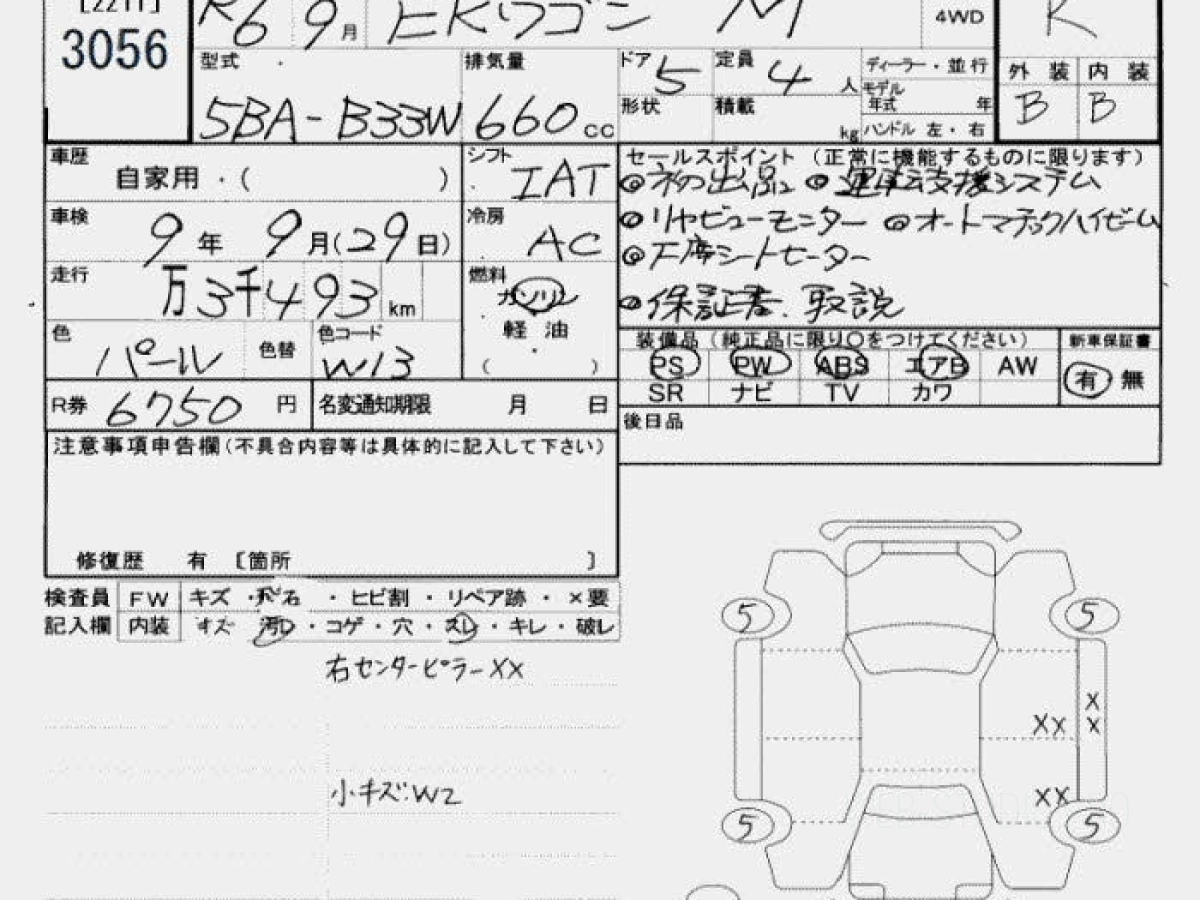 [2211]
3056
R6 9月 EKワゴン M 4WD R
型式 排気量 ドア 5 定員 4人 ディーラー・並行
外装 内装
モデル年式 年
5BA-B33W 660cc 形状 積載 kg ハンドル 左・右
B B
車歴 自家用・( )
シフト IAT
セールスポイント(正常に機能するものに限ります)
◎初出品 ◎運転支援システム
車検 9年 9月(29日)
冷房 AC
◎リヤビューモニター ◎オートマチックハイビーム
◎下席シートヒーター
走行 万3千493km
燃料 ガソリン
軽油
( )
◎保証書.取説
色 パール 色替 色コード W13
装備品(純正品に限り〇をつけてください) 新車保証書
PS PW ABS エアB AW 有 無
SR ナビ TV カワ
R券 6750円 名変通知期限 月 日
後日品
注意事項申告欄(不具合内容等は具体的に記入して下さい)
修復歴 有 〔箇所 〕
検査員 FW キズ・飛石・ヒビ割・リペア跡・×要
記入欄 内装 キズ 汚し・コゲ・穴・スレ・キレ・破レ
右センターピラーXX
小キズ:W2
5 5
X
X
XX
XX
5 5